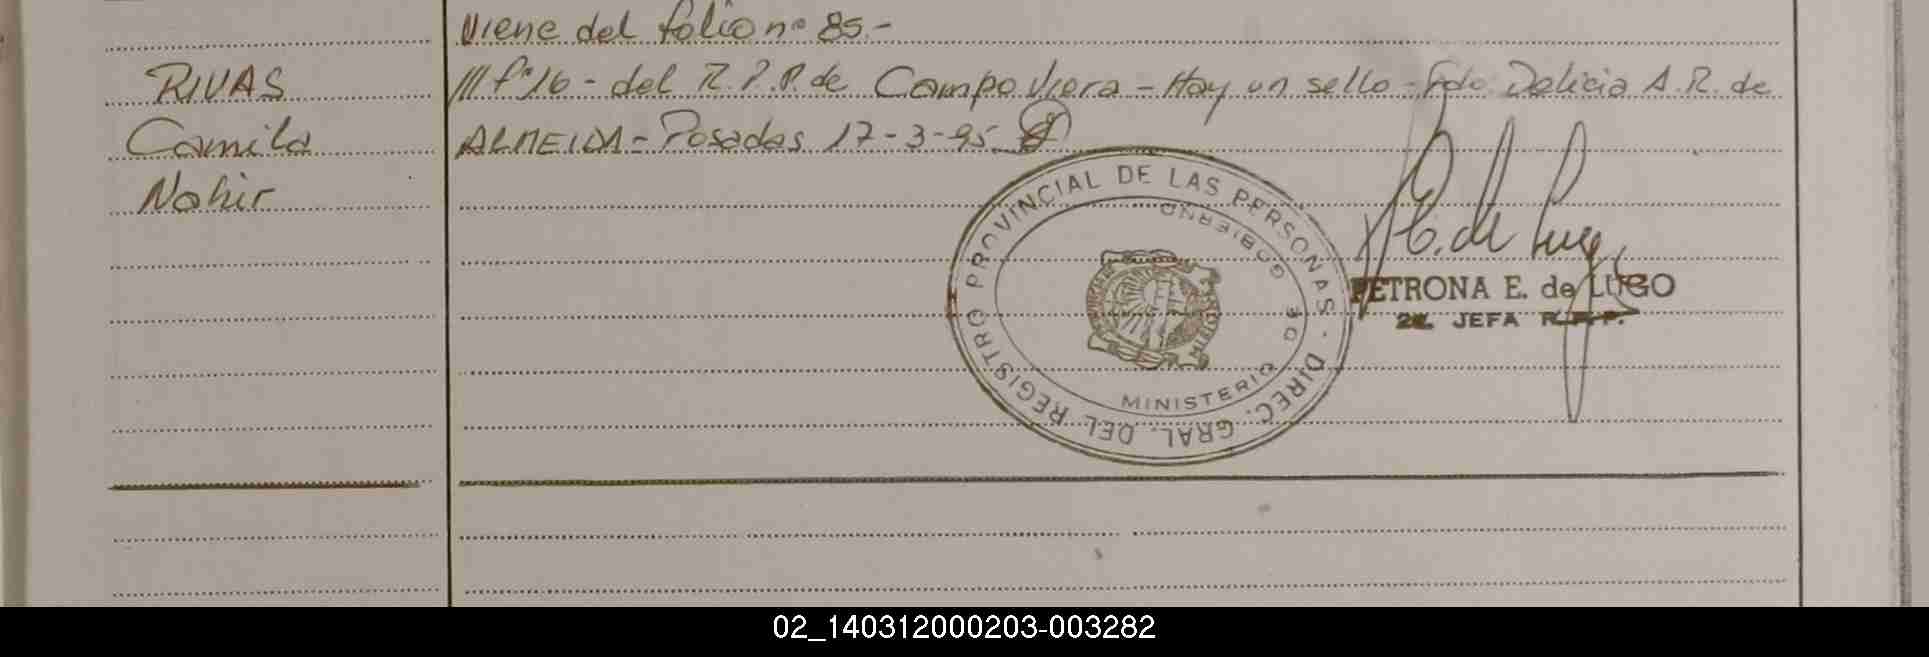 Viene del folio nº 85.-
RIVAS
/// fº 16 - del R.P.P. de Campo Viera - Hay un sello - Fdo. Delicia A. R. de
Camila
ALMEIDA - Posadas 17-3-95
Nahir
DIREC. GRAL. DEL REGISTRO PROVINCIAL DE LAS PERSONAS ·
MINISTERIO DE GOBIERNO
P.E. de Lugo
PETRONA E. de LUGO
2a. JEFA R.P.P.
02_140312000203-003282